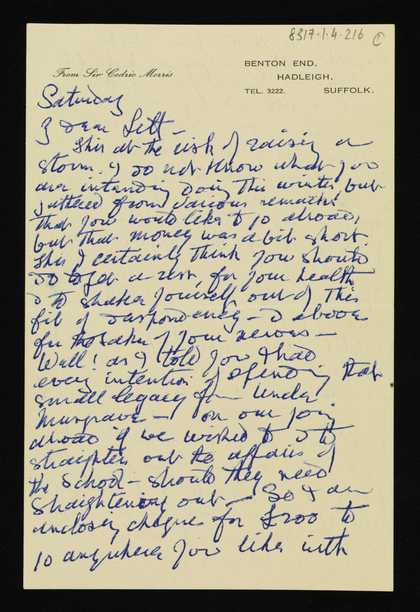 8317·1·4·216 C
From Sir Cedric Morris
BENTON END.
HADLEIGH.
TEL. 3222. SUFFOLK.
Saturday
Dear Lett –
This at the risk of raising a
storm. I do not know what you
are intending doing this winter, but
gathered from various remarks
that you would like to go abroad,
but that money was a bit short.
This I certainly think you should
do to get a rest, for your health
& to shake yourself out of this
fit of despondency – & above
for the sake of your nerves –
Well! as I told you I had
every intention of spending that
small legacy from Uncle
Musgrave – on our going
abroad if we wished & to
straighten out the affairs of
the School – should they need
straightening out – So I am
enclosing cheque for £200 to
go anywhere you like with